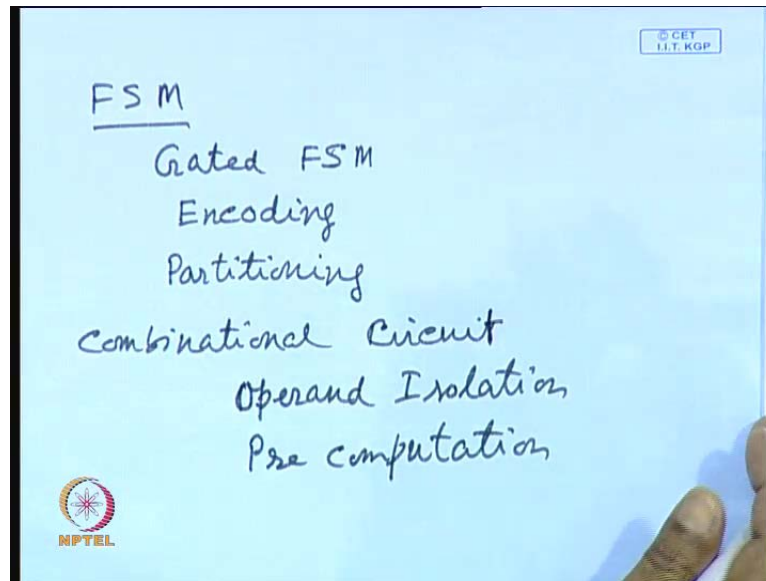 © CET
I.I.T. KGP
FSM
Gated FSM
Encoding
Partitioning
Combinational Circuit
Operand Isolation
Pre computation
NPTEL